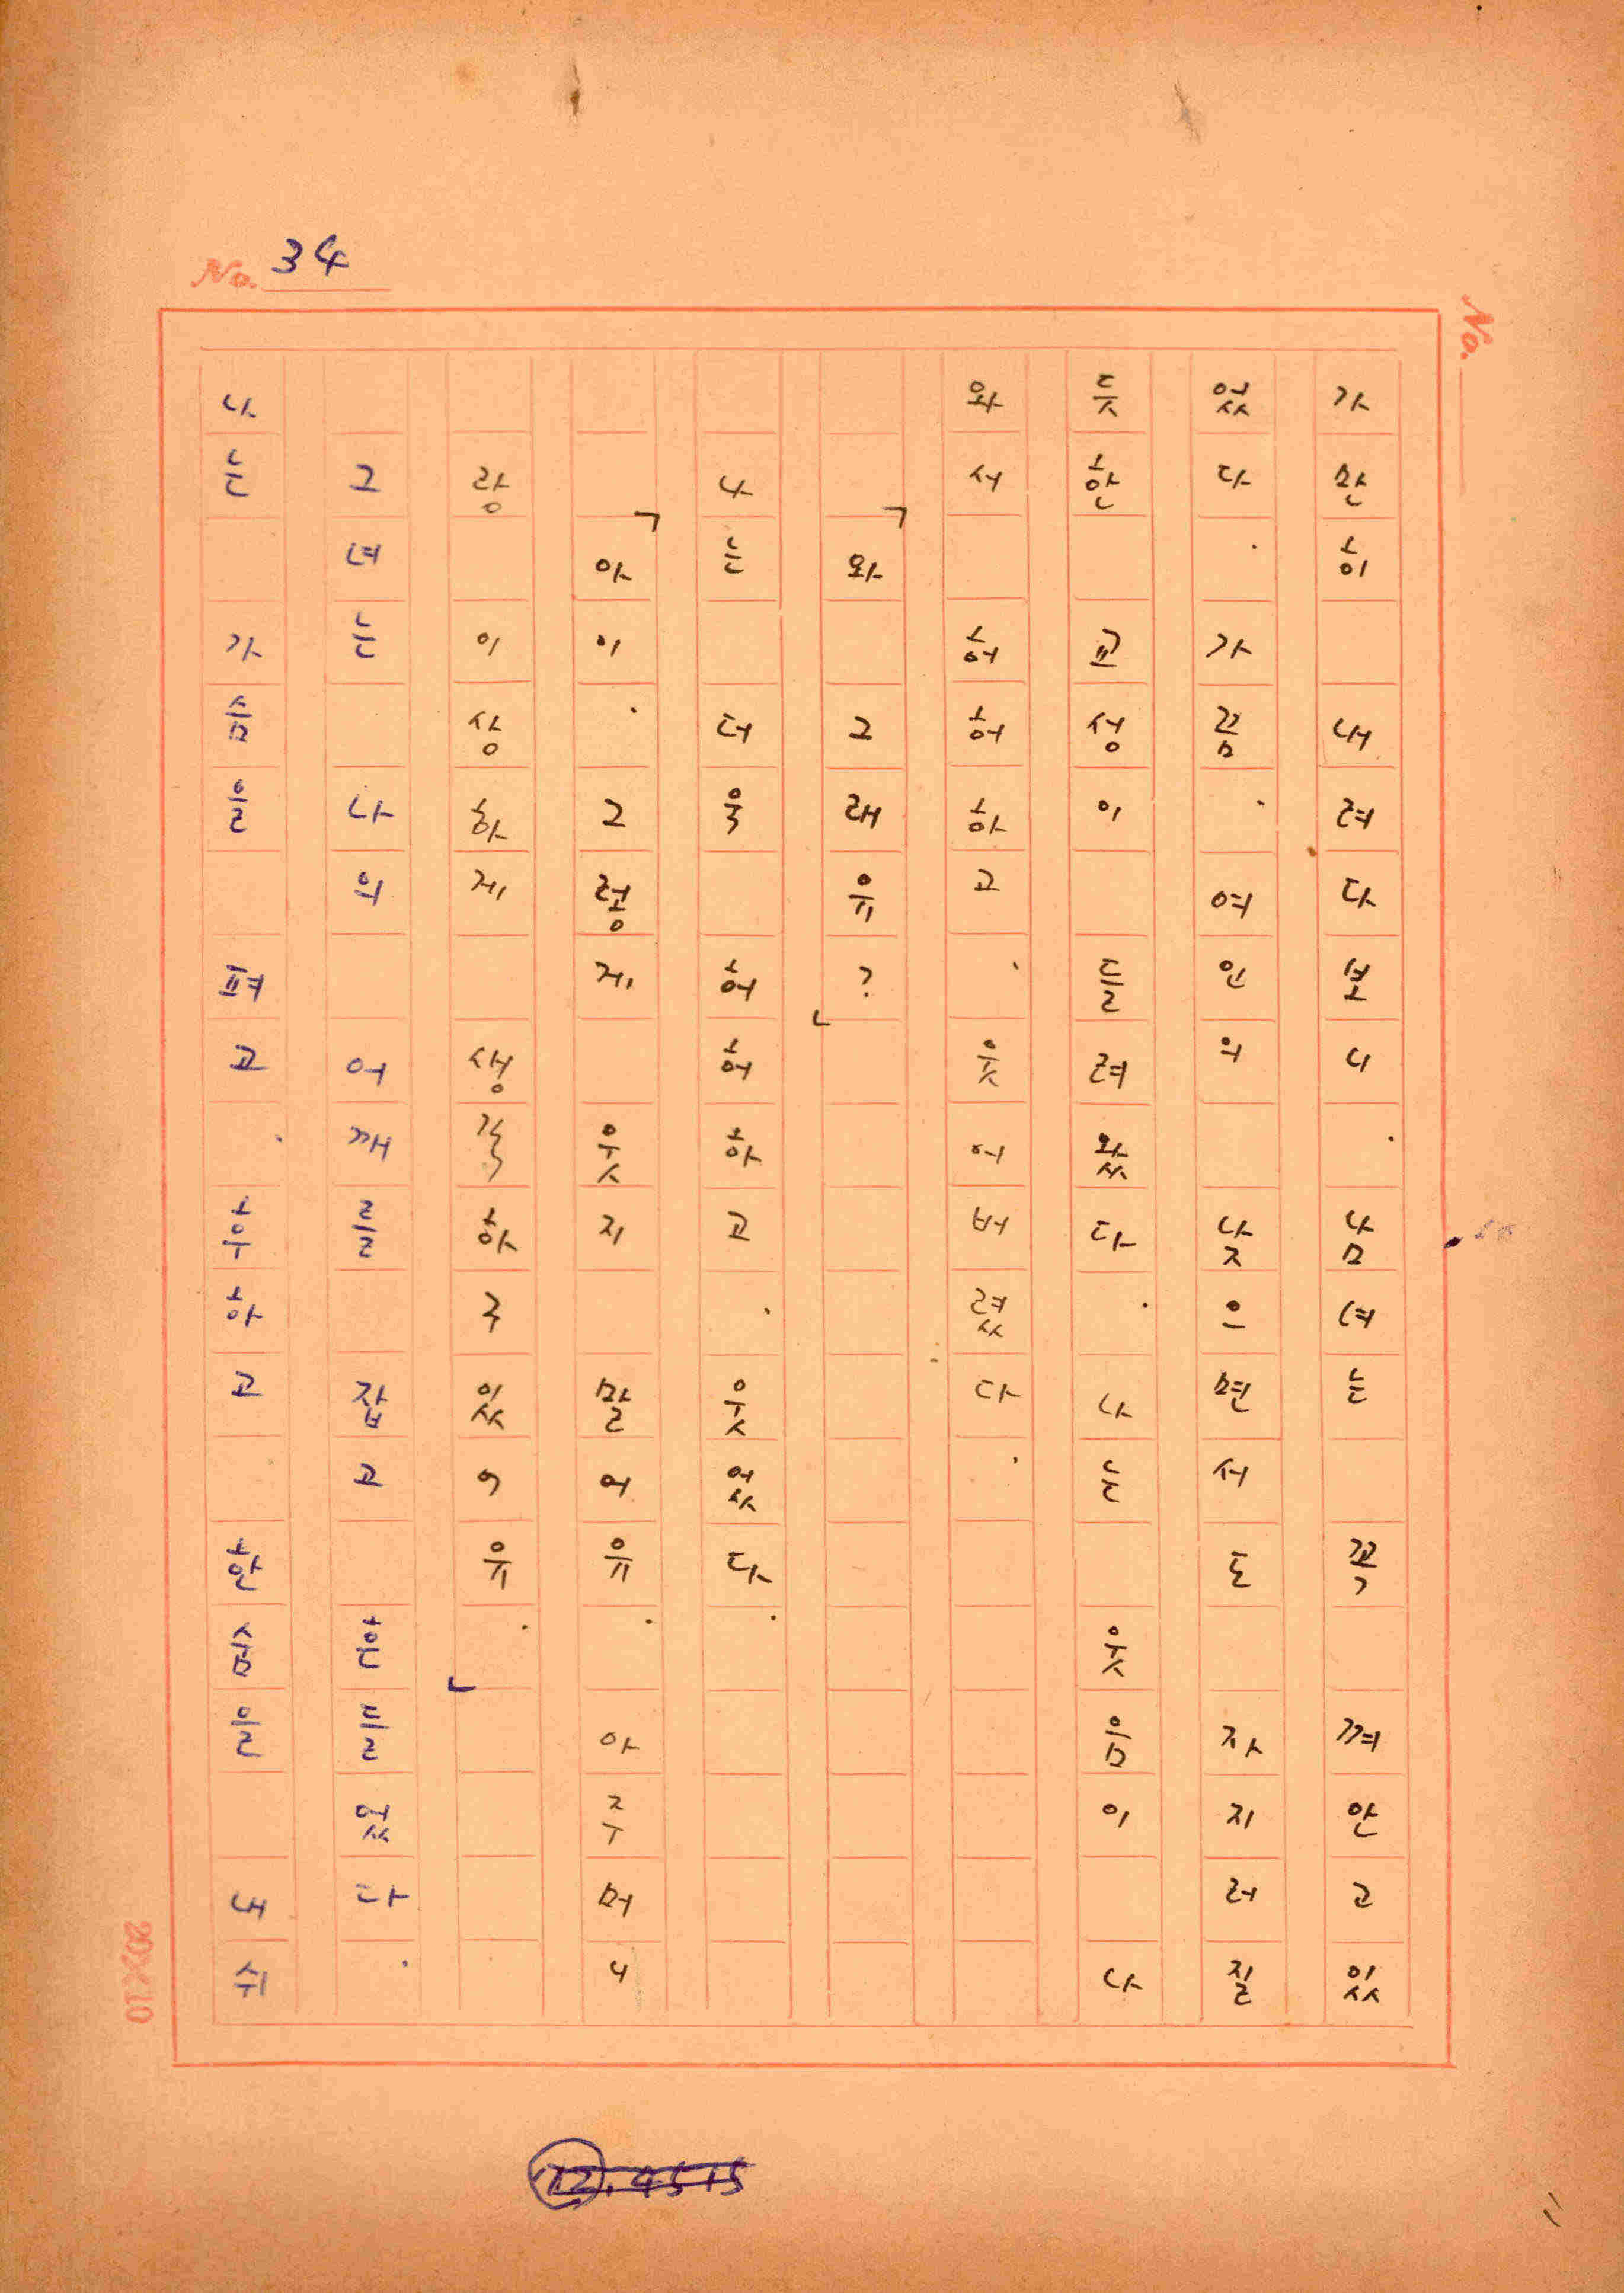 No. 34
No.
가만히 내려다보니. 남녀는 꼭 껴안고 있
었다. 가끔. 여인의 낮으면서도 자지러질
듯한 교성이 들려왔다. 나는 웃음이 나
와서 허허하고. 웃어버렸다.
「와 그래유?」
나는 더욱 허허하고. 웃었다.
「아이. 그렇게 웃지 말어유. 아주머니
랑 이상하게 생각하구 있어유.」
그녀는 나의 어깨를 잡고 흔들었다.
나는 가슴을 펴고. 후하고 한숨을 내쉬
20×10